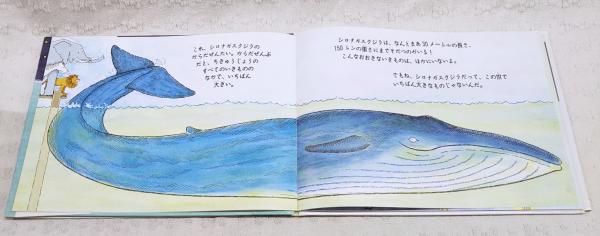 これ、シロナガスクジラの
からだぜんたい。からだぜんぶ
だと、ちきゅうじょうの
すべてのいきものの
なかで、いちばん
大きい。
シロナガスクジラは、なんとまあ30メートルの長さ、
150トンの重さにまでそだつのがいる！
こんなおおきないきものは、ほかにいないよ。
でもね、シロナガスクジラだって、この世で
いちばん大きなものじゃないんだ。